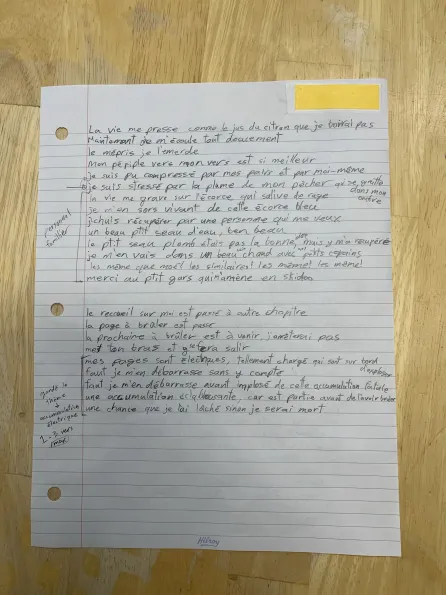 La vie me presse comme le jus du citron que je boirai pas
Maintenant je m'écoule tout doucement
le mépris je l'emerde
Mon pépide vers mon vers est ci meilleur
je suis pu compressé par mes pairs et par moi-même
je suis stressé par la plume de mon pêcher qui se gratte dans mon enfère
la vie me grave sur l'écorse, qui salive de rage
je m'en sors vivant de cette écorce bleu
jchuis récupérer par une personne qui me veux
un beau ptit seau d'eau, ben beau
le ptit seau plomb étais pas la bonne, mais y m'a récupéré
je m'en vais dans un beau chand avec ptits copains
les même que moé! les similaires! les même! les même!
merci au ptit gars qui m'amène en skidoo
personel
familier
le recueil sur moi est passé à autre chapitre
la page à brûler est passé
la prochaine à brûler est à venir, j'amèlerai pas
mes ton bras et salir
mes pages sont électriques, tellement chargé qui sont sur bord d'exploser
faut je m'en débarrasse sans y compte
faut je m'en débarrasse avant, implosé de cette accumulation fatale
une accumulation éclaboussante, car est partie avant de l'avoir brûler
une chance que je l'ai lâché sinon je serai mort
garde le
thème
accumulation
électrique
1-2 vers
Hilroy